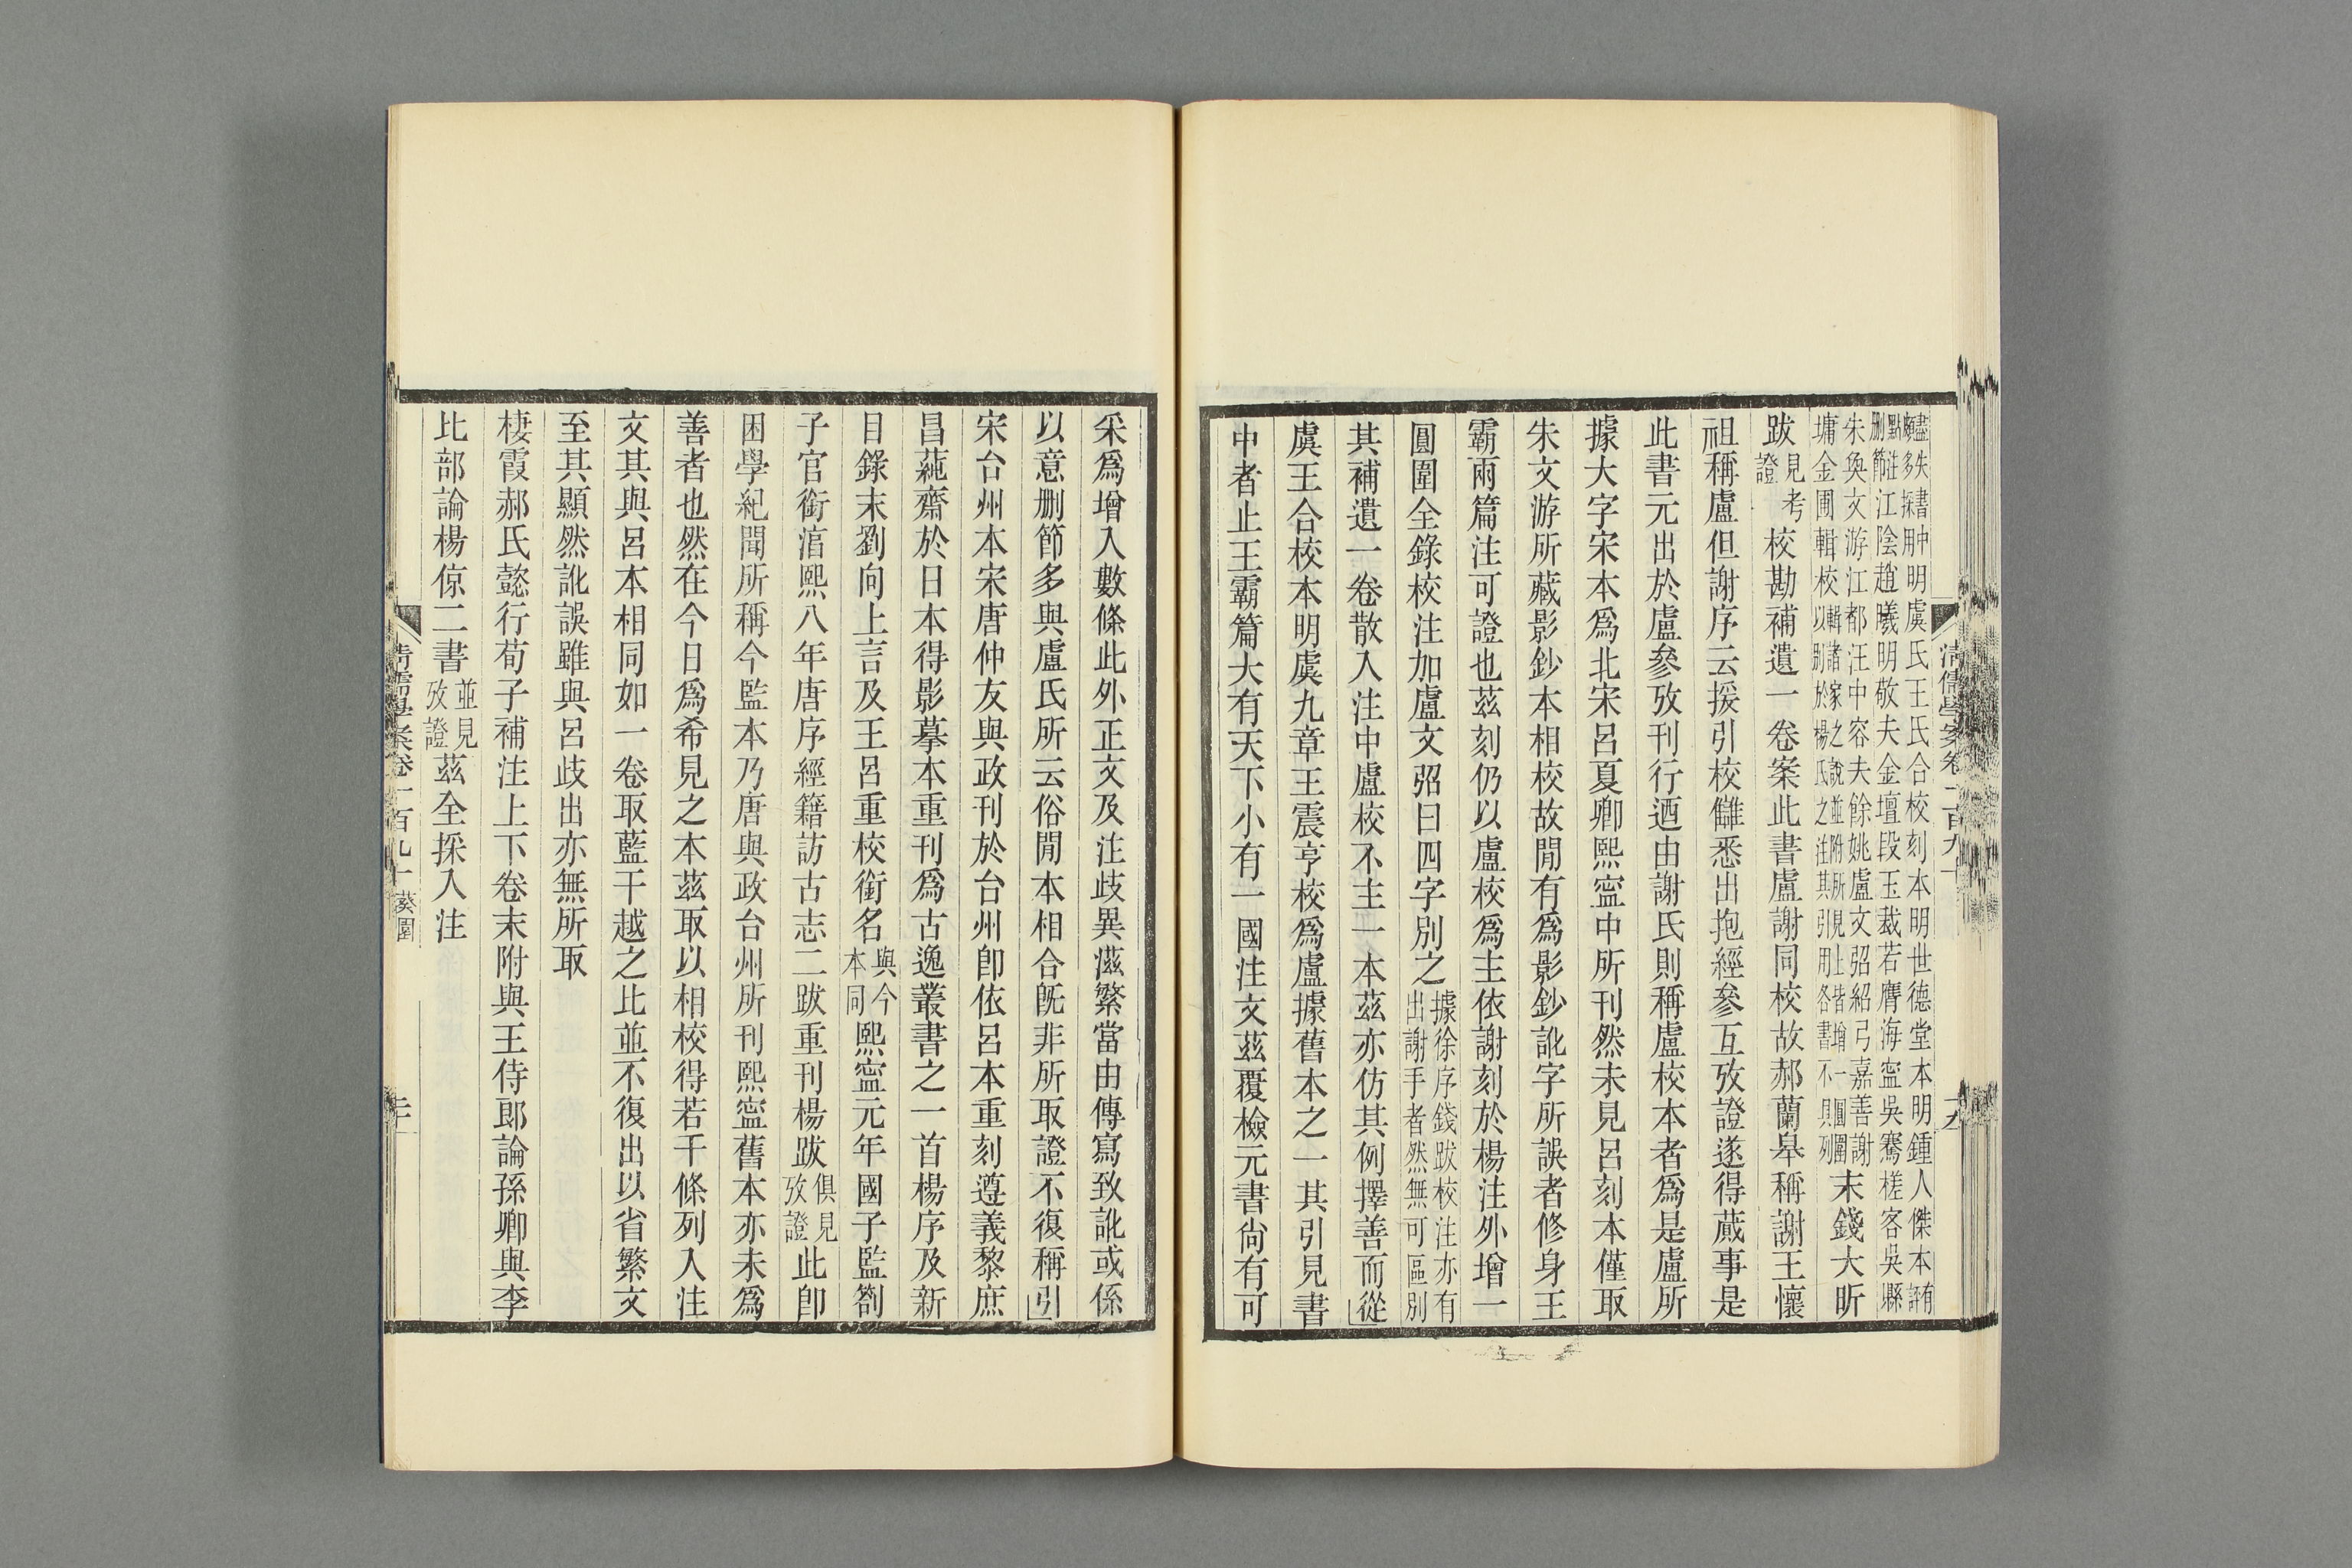 盡失書中明虞氏王氏合校刻本明世德堂本明鍾人傑本有
顧多採用
點註江陰趙曦明敬夫金壇段玉裁若膺海寍吳騫槎客吳縣
刪節
朱奐文游江都汪中容夫餘姚盧文弨紹弓嘉善謝
墉金圃輯校輯諸家之說並附所見上皆增一圓圍末錢大昕
以別於楊氏之注其引用各書不具列
跋見考證校勘補遺一卷案此書盧謝同校故郝蘭皋稱謝王懷
祖稱盧但謝序云援引校讎悉出抱經參互攷證遂得蕆事是
此書元出於盧參攷刊行迺由謝氏則稱盧校本者爲是盧所
據大字宋本爲北宋呂夏卿熙寍中所刊然未見呂刻本僅取
朱文游所藏影鈔本相校故閒有爲影鈔訛字所誤者修身王
霸兩篇注可證也茲刻仍以盧校爲主依謝刻於楊注外增一
圓圍全錄校注加盧文弨曰四字別之據徐序錢跋校注亦有出謝手者然無可區別
其補遺一卷散入注中盧校不主一本茲亦仿其例擇善而從
虞王合校本明虞九章王震亨校爲盧據舊本之一其引見書
中者止王霸篇大有天下小有一國注文茲覆檢元書尙有可
清儒學案卷一百九十
十九
采爲增入數條此外正文及注歧異滋繁當由傳寫致訛或係
以意刪節多與盧氏所云俗閒本相合旣非所取證不復稱引
宋台州本宋唐仲友與政刊於台州卽依呂本重刻遵義黎庶
昌蒓齋於日本得影摹本重刊爲古逸叢書之一首楊序及新
目錄末劉向上言及王呂重校銜名與今本同熙寍元年國子監劄
子官銜㳷熙八年唐序經籍訪古志二跋重刊楊跋俱見攷證此卽
困學紀聞所稱今監本乃唐與政台州所刊熙寍舊本亦未爲
善者也然在今日爲希見之本茲取以相校得若干條列入注
文其與呂本相同如一卷取藍干越之比並不復出以省繁文
至其顯然訛誤雖與呂歧出亦無所取
棲霞郝氏懿行荀子補注上下卷末附與王侍郎論孫卿與李
比部論楊倞二書並見攷證茲全採入注
清儒學案卷一百九十 葵園
二十